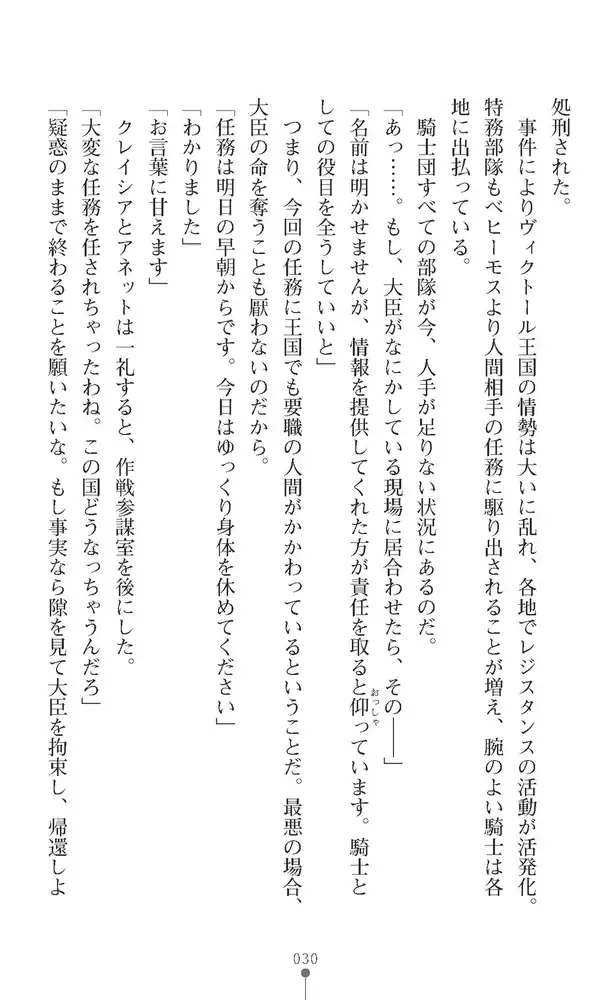 処刑された。
　事件によりヴィクトール王国の情勢は大いに乱れ、各地でレジスタンスの活動が活発化。
特務部隊もベヒーモスより人間相手の任務に駆り出されることが増え、腕のよい騎士は各
地に出払っている。
　騎士団すべての部隊が今、人手が足りない状況にあるのだ。
「あっ……。もし、大臣がなにかしている現場に居合わせたら、その――」
「名前は明かせませんが、情報を提供してくれた方が責任を取ると仰っています。騎士と
おっしゃ
しての役目を全うしていいと」
　つまり、今回の任務に王国でも要職の人間がかかわっているということだ。最悪の場合、
大臣の命を奪うことも厭わないのだから。
「任務は明日の早朝からです。今日はゆっくり身体を休めてください」
「わかりました」
「お言葉に甘えます」
　クレイシアとアネットは一礼すると、作戦参謀室を後にした。
「大変な任務を任されちゃったわね。この国どうなっちゃうんだろ」
「疑惑のままで終わることを願いたいな。もし事実なら隙を見て大臣を拘束し、帰還しよ
030